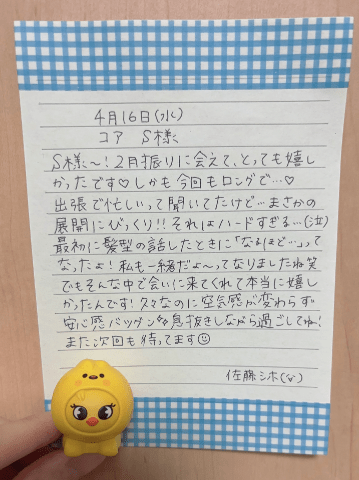 4月16日(水)
コア S様
S様〜!2月振りに会えて、とっても嬉し
かったです♡しかも今回もロングで…♡
出張で忙しいって聞いてたけど…まさかの
展開にびっくり!!それはハードすぎる…(泣)
最初に髪型の話したときに「なるほど…」って
なったよ!私も一緒だよ〜ってなりましたね笑
でもそんな中で会いに来てくれて本当に嬉し
かったんです!久々なのに空気感が変わらず
安心感バツグン 息抜きしながら過ごしてね!
また次回も待ってます☺
佐藤シホ